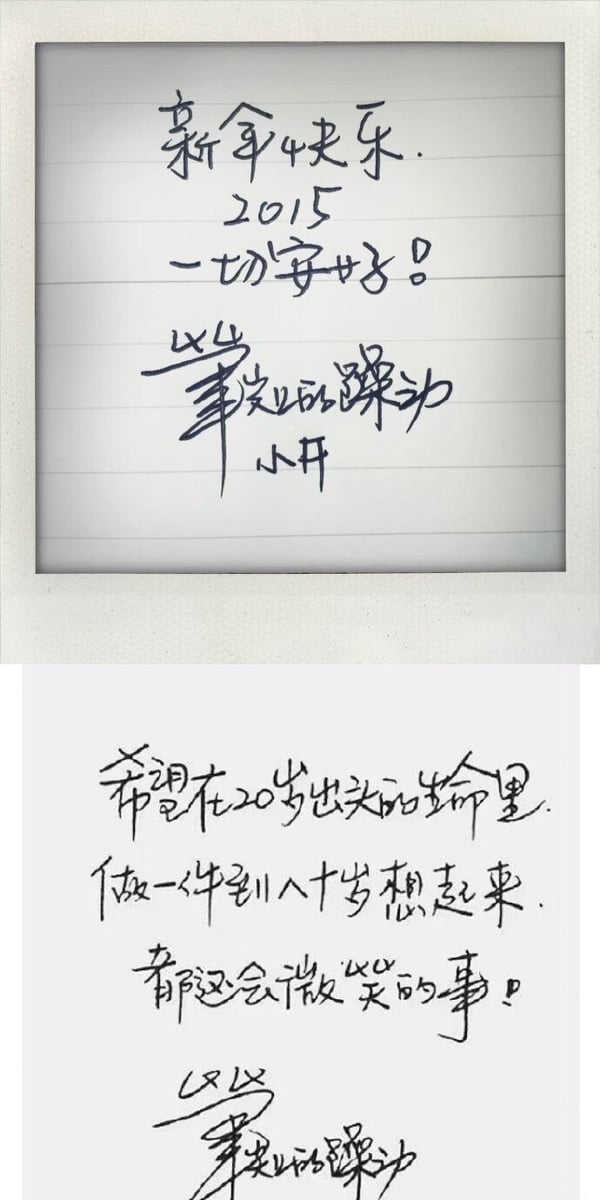 新年快乐.
2015
一切安好!
笔尖的躁动
小开
希望在20岁出头的生命里.
做一件到八十岁想起来.
都还会微笑的事!
笔尖的躁动